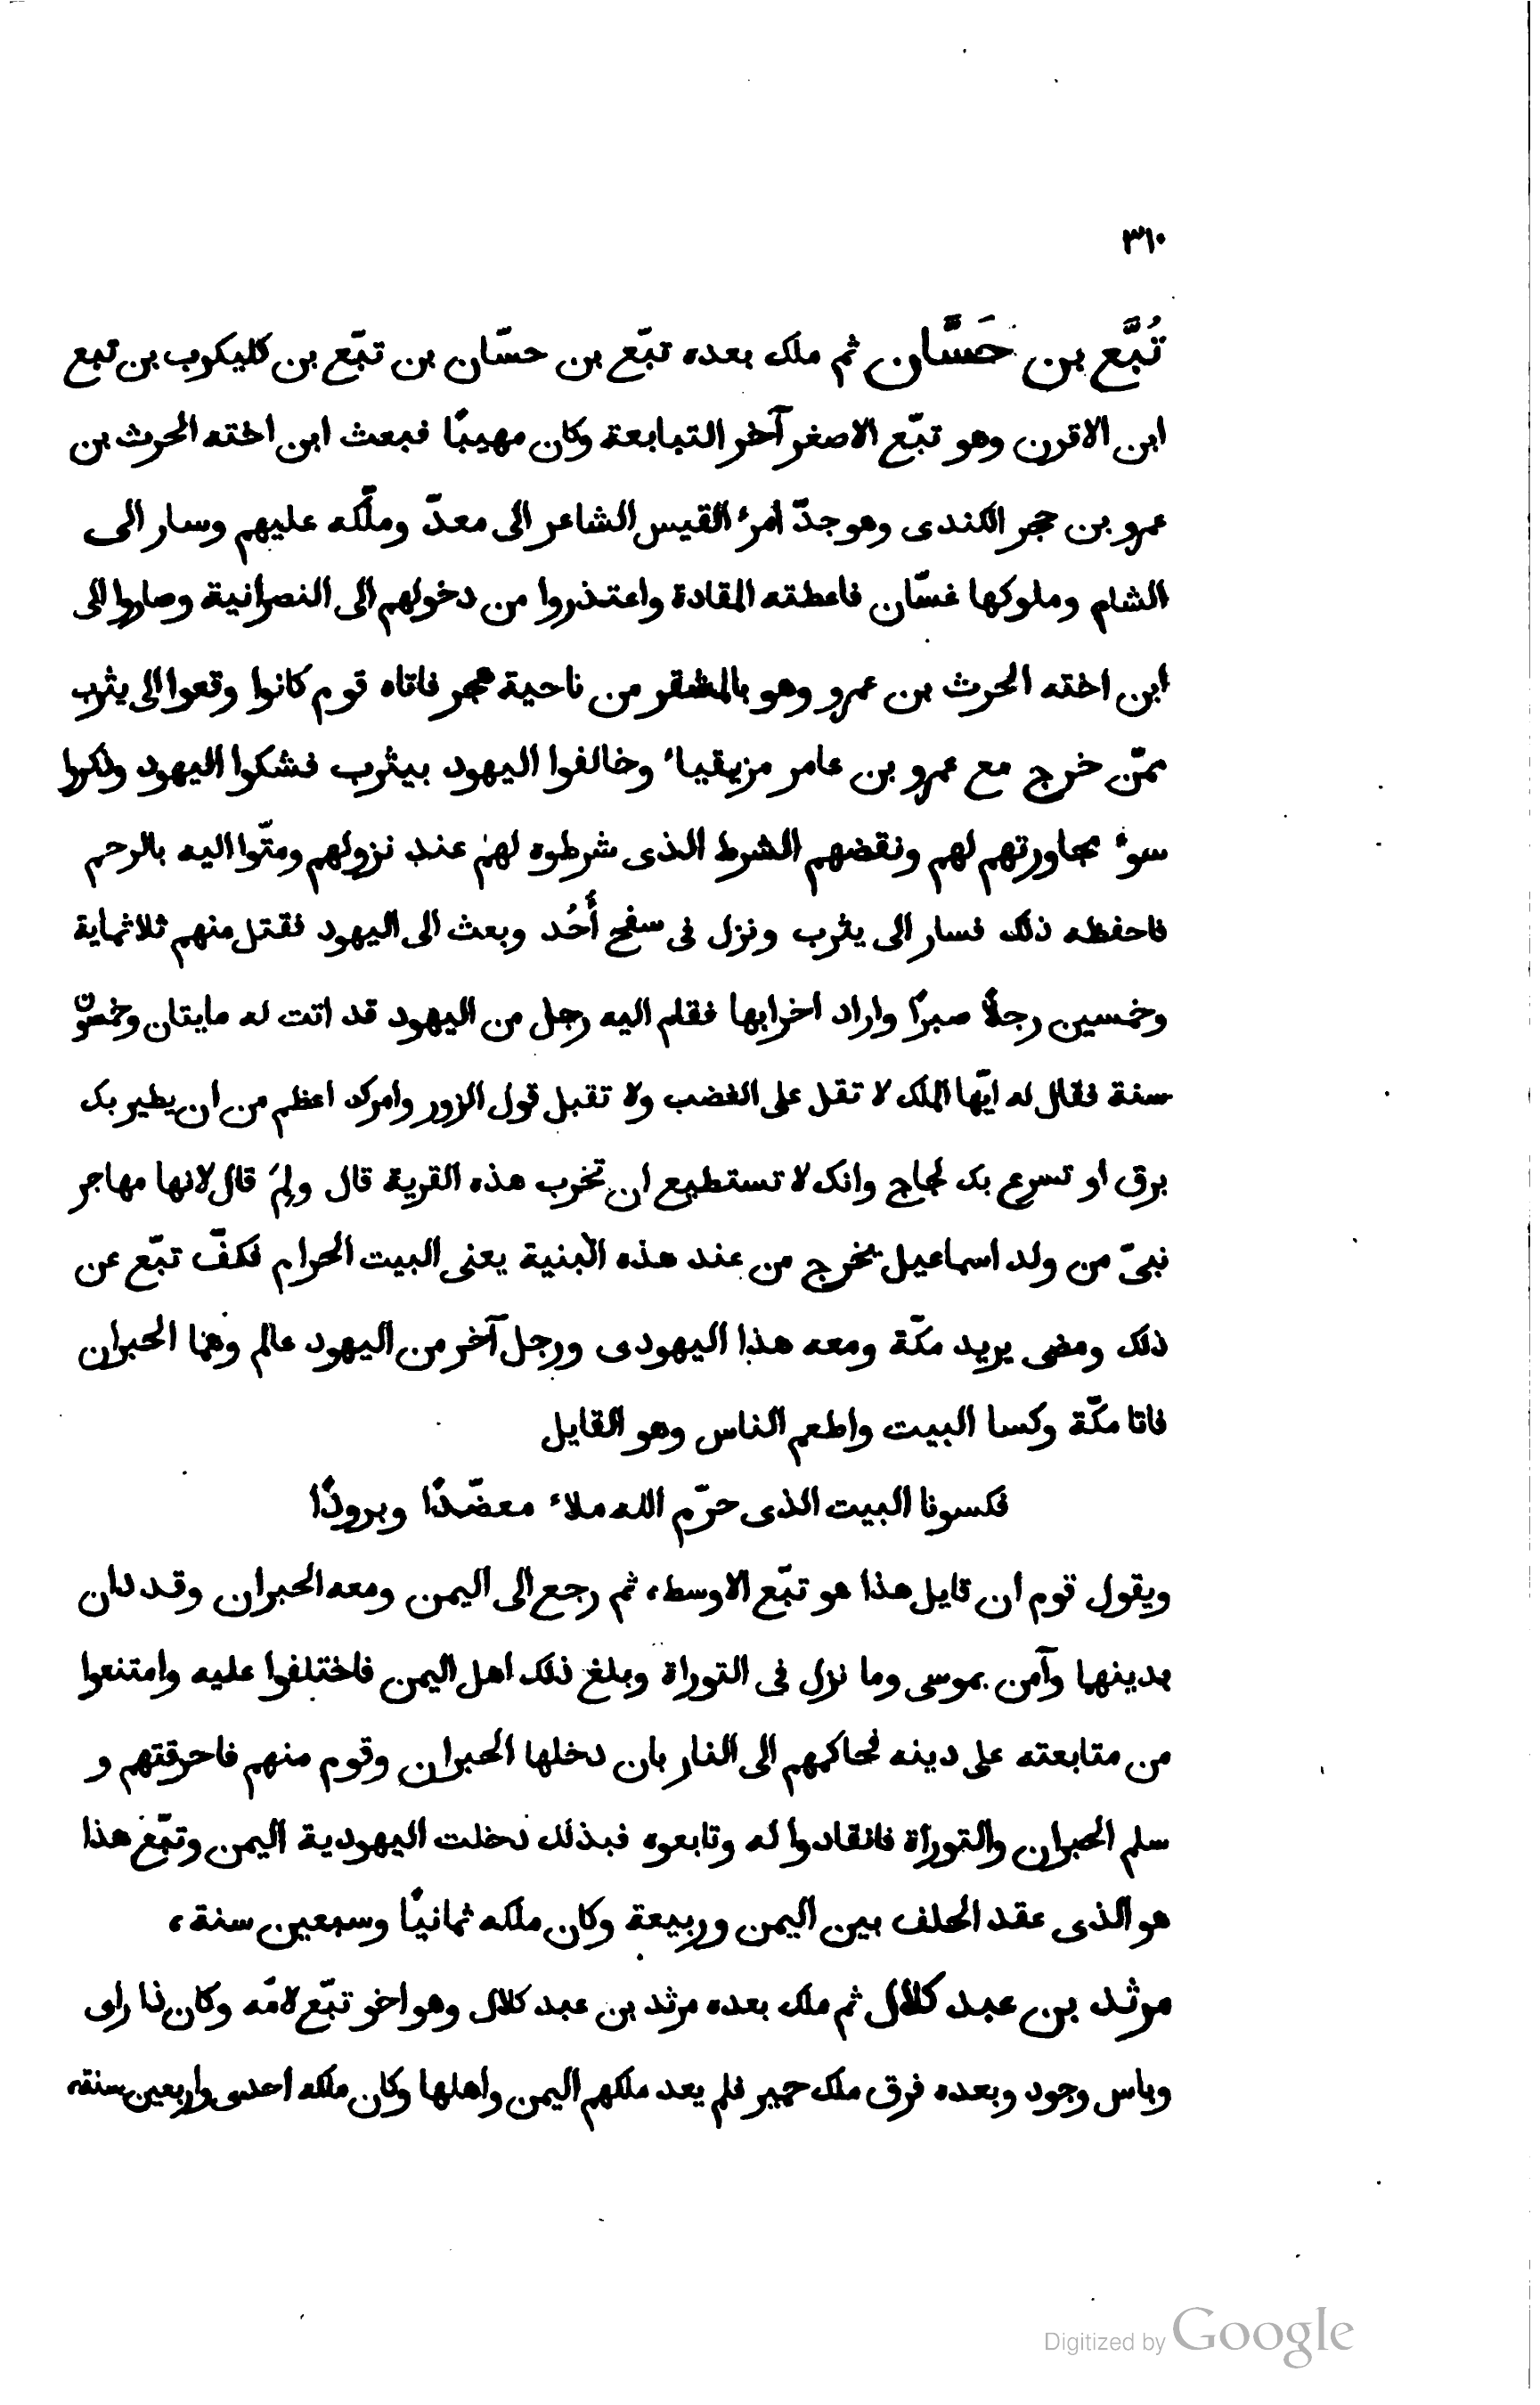 ٣١٠
تُبَّع بن حَسَّان ثم ملك بعده تبّع بن حسّان بن تبّع بن كليكرب بن تبع
ابن الاقرن وهو تبّع الاصغر آخر التبابعة وكان مهيبًا فبعث ابن اخته الحرث بن
عمرو بن حجر الكندى وهو جدّ امرء القيس الشاعر الى معدّ وملّكه عليهم وسار الى
الشام وملوكها غسّان فاعطته المقادة واعتذروا من دخولهم الى النصرانية وصاروا الى
ابن اخته الحرث بن عمرو وهو بالمشقر من ناحية هجر فاتاه قوم كانوا وقعوا الى يثرب
ممّن خرج مع عمرو بن عامر مزيقياء وخالفوا اليهود بيثرب فشكوا اليهود وذكروا
سوء مجاورتهم لهم ونقضهم الشرط الذى شرطوه لهم عند نزولهم ومتّوا اليه بالرحم
فاحفظه ذلك فسار الى يثرب ونزل فى سفح أُحُد وبعث الى اليهود فقتل منهم ثلاثماية
وخمسين رجلًا صبرًا واراد اخرابها فقام اليه رجل من اليهود قد اتت له مايتان وخمسون
سنة فقال له ايّها الملك لا تقل على الغضب ولا تقبل قول الزور وامرك اعظم من ان يطير بك
برق او تسرع بك لجاج وانك لا تستطيع ان تخرب هذه القرية قال ولِمَ قال لانها مهاجر
نبىّ من ولد اسماعيل يخرج من عند هذه البنية يعنى البيت الحرام فكفّ تبّع عن
ذلك ومضى يريد مكّة ومعه هذا اليهودى ورجل آخر من اليهود عالم وهما الحبران
فاتا مكّة وكسا البيت واطعم الناس وهو القايل
فكسونا البيت الذى حرّم الله ملاء معضّدًا وبرودًا
ويقول قوم ان قايل هذا هو تبّع الاوسط، ثم رجع الى اليمن ومعه الحبران وقد دان
بدينهما وآمن بموسى وما نزل فى التوراة وبلغ ذلك اهل اليمن فاختلفوا عليه وامتنعوا
من متابعته على دينه فحاكمهم الى النار بان دخلها الحبران وقوم منهم فاحرقتهم و
سلم الحبران والتوراة فانقادوا له وتابعوه فبذلك دخلت اليهودية اليمن وتبّع هذا
هو الذى عقد الحلف بين اليمن وربيعة وكان ملكه ثمانيًا وسبعين سنة،
مرثد بن عبد كلال ثم ملك بعده مرثد بن عبد كلال وهو اخو تبّع لامّه وكان ذا راى
وباس وجود وبعده فرق ملك حمير فلم يعد ملكهم اليمن واهلها وكان ملكه احدى واربعين سنة،
Digitized by Google